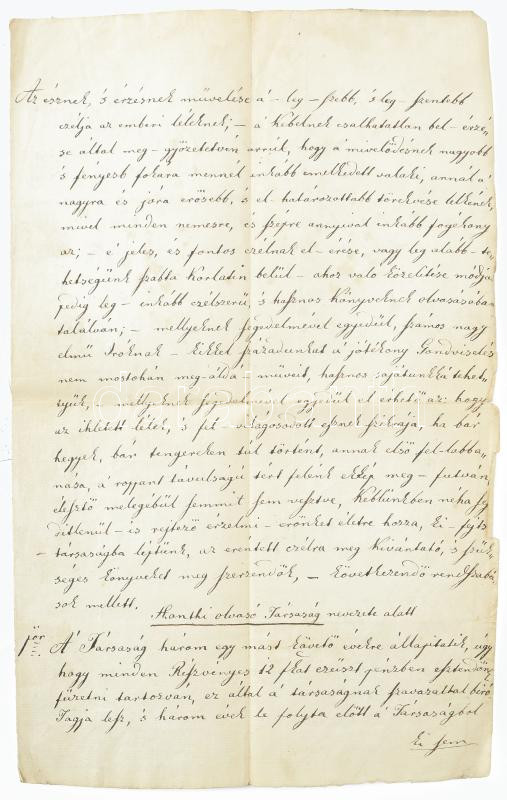 Az észnek, 's érzésnek művelése á - leg - szebb, 's leg - szentebb
czélja az emberi léleknek; - á kebelnek csalhatatlan bel - érzé„
se által meg - győzetetvén arrúl, hogy a mivelődésnek nagyobb
's fényesb fokára mennél inkább emelkedett valaki, annál á
nagyra és jóra erősebb, 's el - határozottabb törekvése lelkének,
mivel minden nemesre, és szépre annyival inkább fogékony
az; - é jeles, és fontos czélnak el - érése, vagy leg alább - te„
hetségünk szabta korlátin belűl - ahoz való közelítése módját
pedig leg - inkább czélszerű, 's hasznos könyveknek olvasásában
találván; - mellyeknek segedelmével egyedűl, számos nagy
elmű Iróknak - kikkel századunkat a jótékony Gondviselés
nem mostohán meg-áldá műveit, hasznos sajátunkká tehet„
jük, - mellyeknek segedelmével egyedűl el érhető az: hogy
az ihletett lélek, 's fel - világosodott észnek szikrája, ha bár
hegyek, bár tengereken túl történt, annak első fel-lobba„
nása, a roppant távulságú tért felénk meg - futván,
élesztő melegébűl semmit sem vesztve, keblünkben néha
- is rejtező érzelmi - erőnket életre hozza, ki - fejts
- társaságba léptünk, az érentett czélra meg kivántató, 's szük„
séges könyveket meg szerzendők, - következendő rendszabá„
sok mellett.
Akantki olvasó Társaság nevezete alatt
1ör A' Társaság három egy mást követő évekre állapitatik, úgy
hogy minden Részvényes 12 fkat ezüst pénzben esztendőn„
fizetni tartozván, ez által á társaságnak szavazattal biró
Tagja lesz, 's három évek le folyta előtt á Társaságból
ki sem